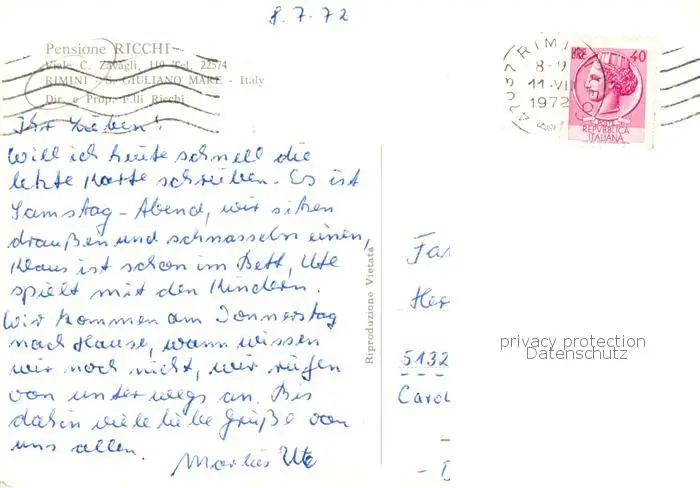 8.7.72
Pensione RICCHI
Viale C. Zavagli, 119 Tel. 22574
RIMINI - S. GIULIANO MARE - Italy
Dir. e Prop. F.lli Ricchi
Ihr Lieben!
Will ich heute schnell die
letzte Karte schreiben. Es ist
Samstag-Abend, wir sitzen
draußen und schnasseln einen,
Klaus ist schon im Bett, Ute
spielt mit den Kindern.
Wir kommen am Donnerstag
nach Hause, wann wissen
wir noch nicht, wir rufen
von unterwegs an. Bis
dahin viele liebe Grüße von
uns allen.
Marlies Ute
Riproduzione Vietata
47037 RIMINI
8-9
11.VII
1972
LIRE 40
POSTE
REPVBBLICA
ITALIANA
Fa
Her
privacy protection
Datenschutz
5132
Carol